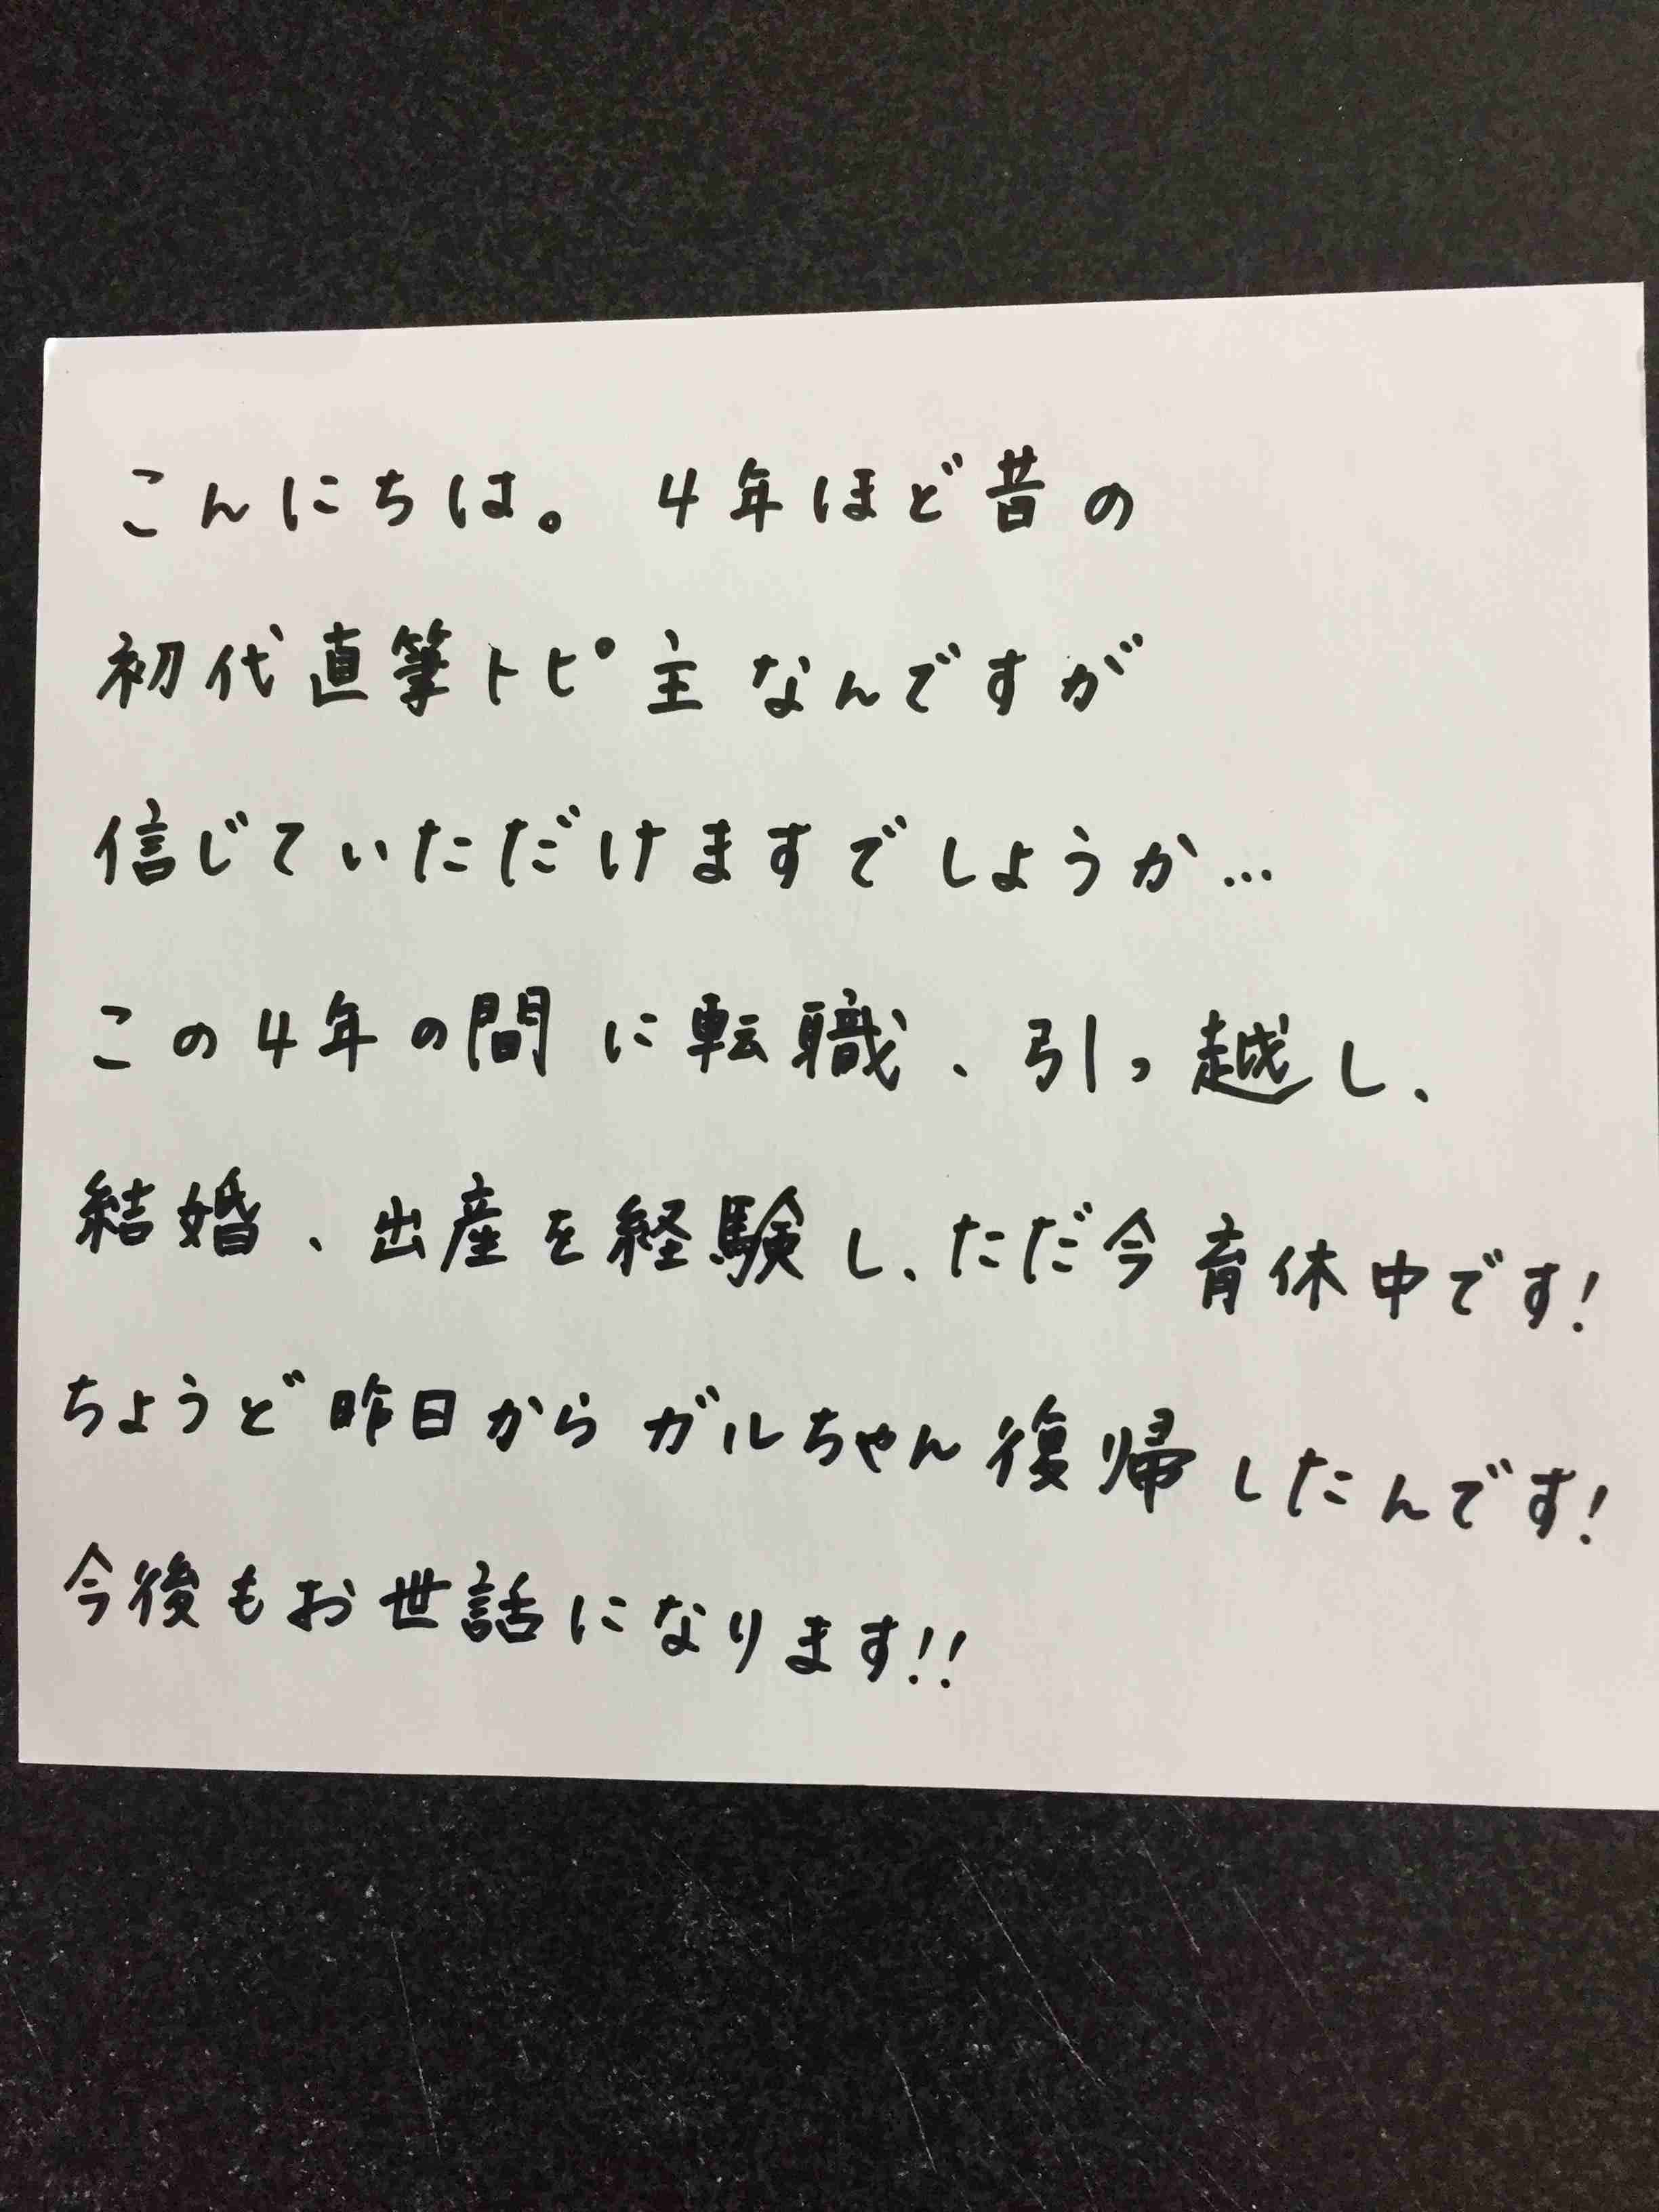 こんにちは。 4年ほど昔の
初代直筆トピ主なんですが
信じていただけますでしょうか…
この4年の間に転職、引っ越し、
結婚、出産を経験し、ただ今育休中です!
ちょうど昨日からガルちゃん復帰したんです!
今後もお世話になります!!